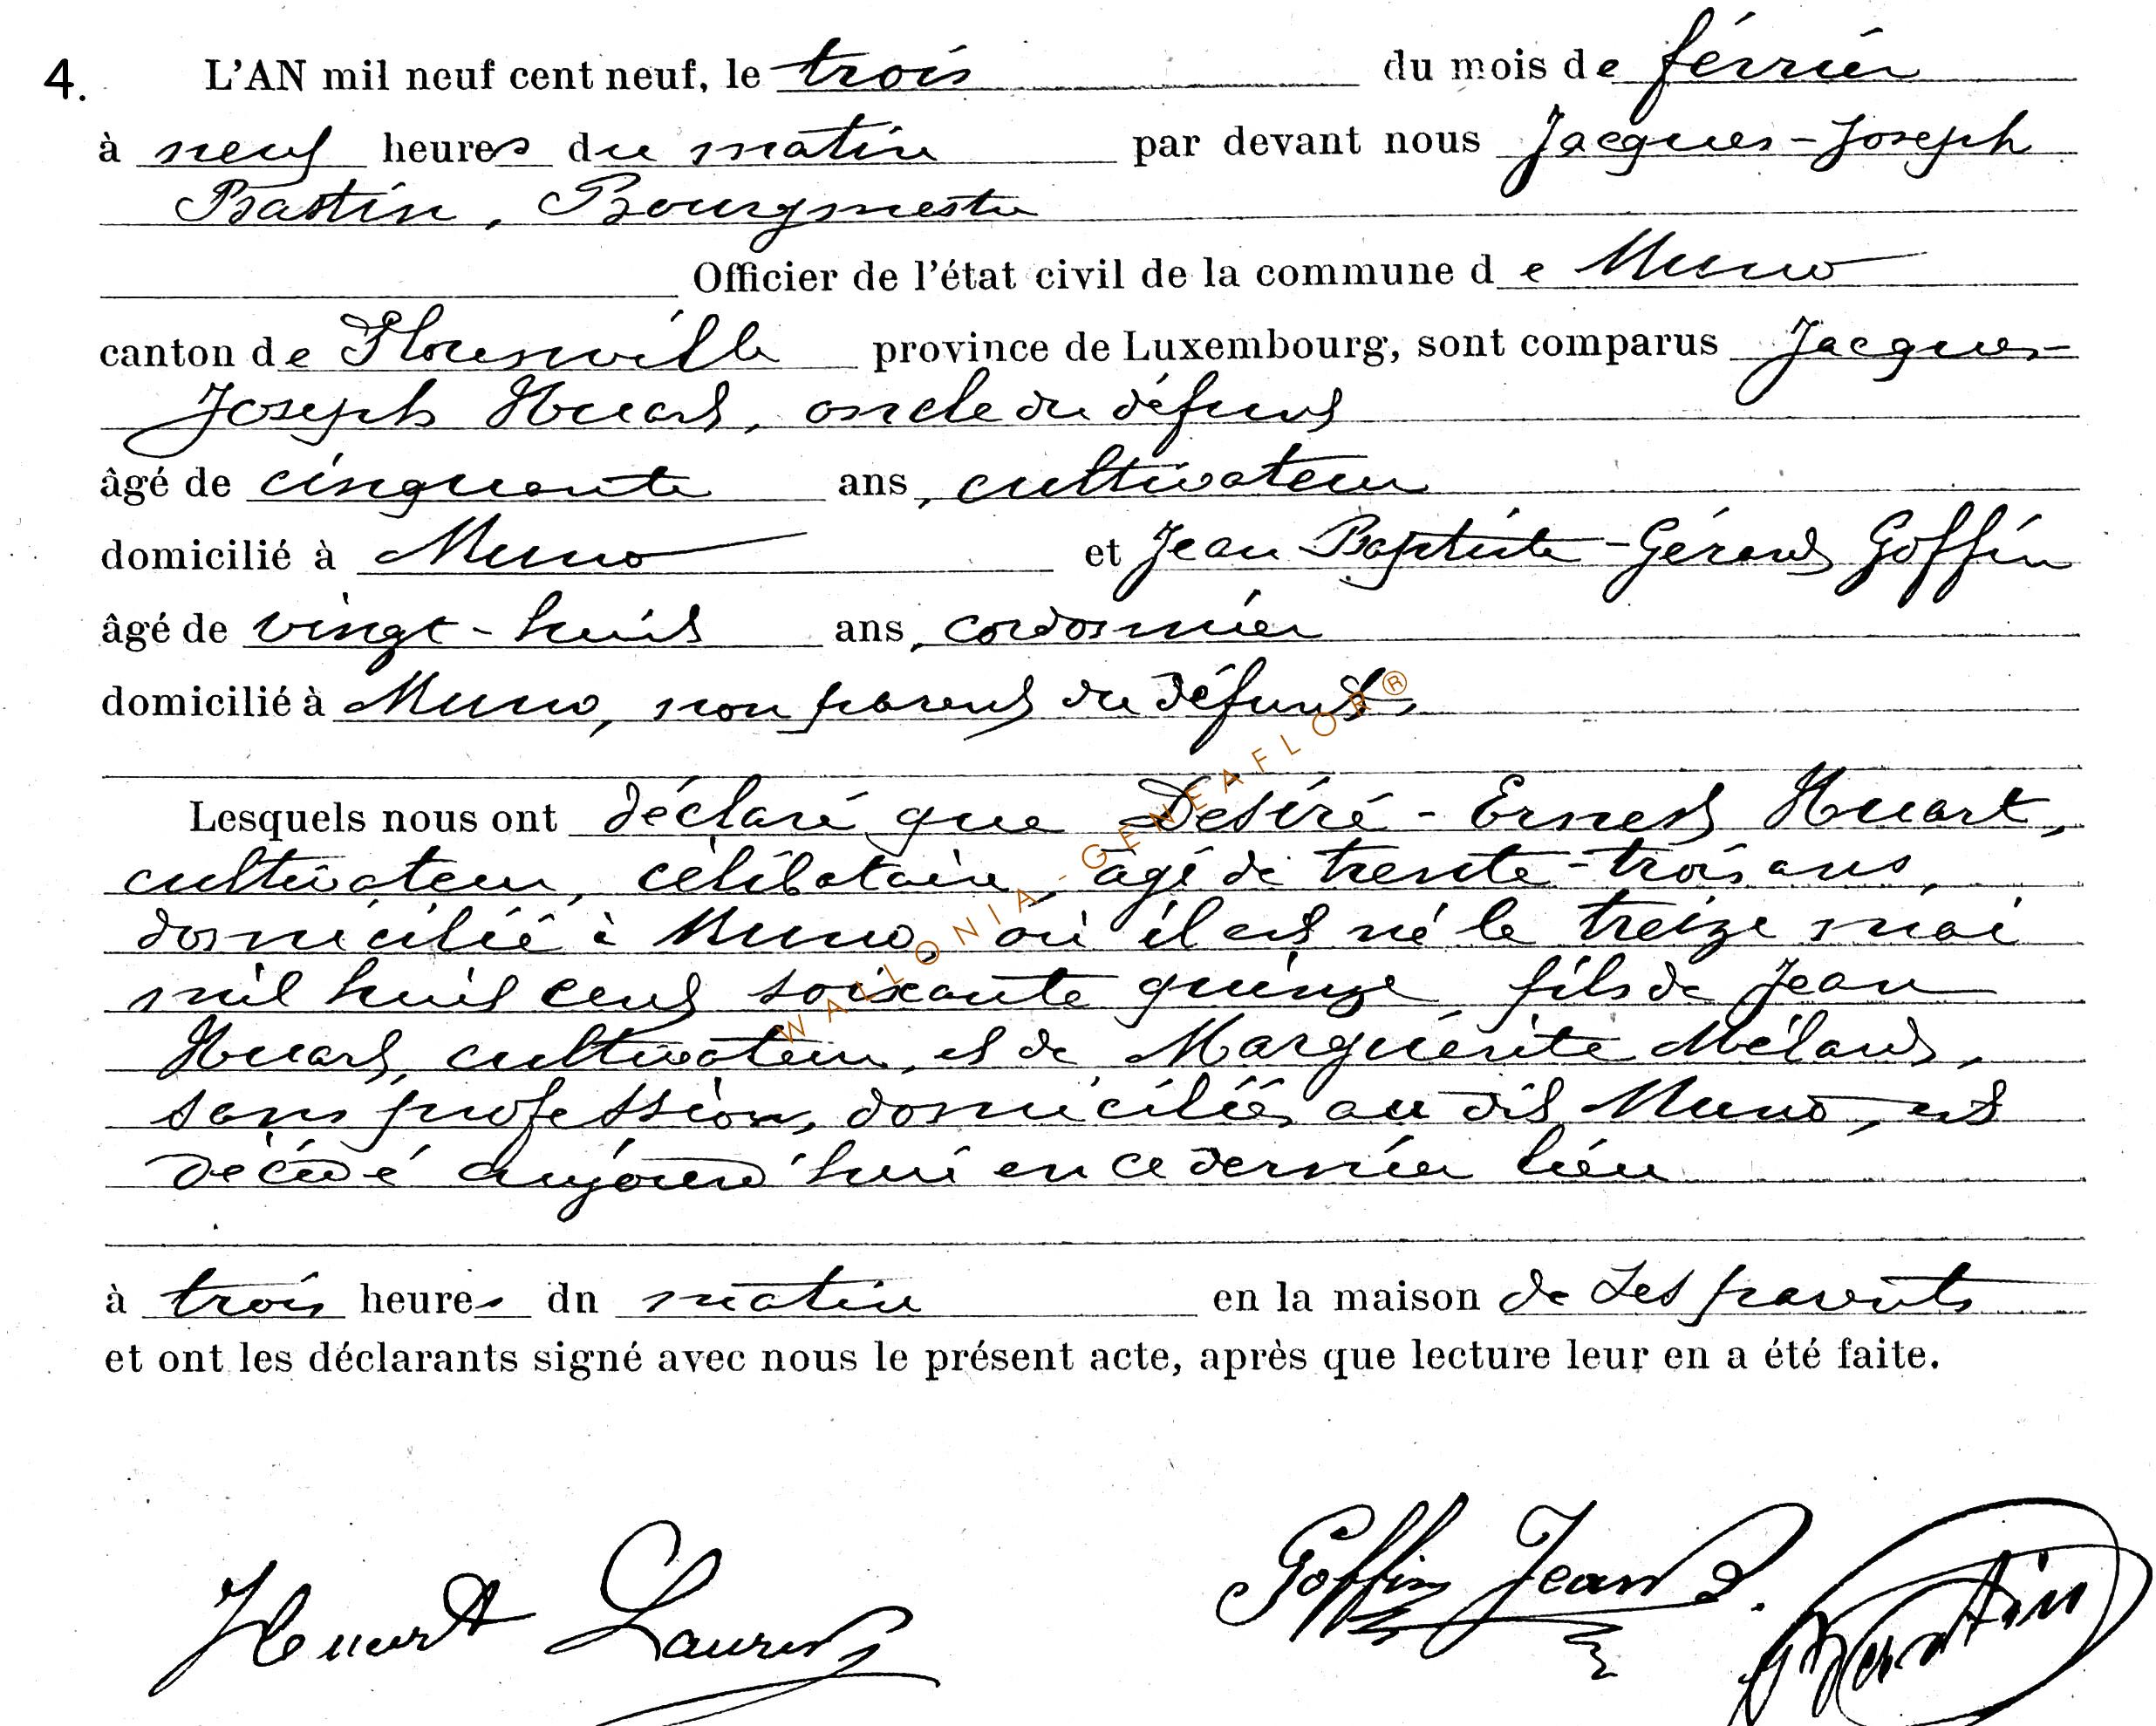 4. L'AN mil neuf cent neuf, le trois du mois de février
à neuf heures du matin par devant nous Jacques-Joseph
Bastin, Bourgmestre
Officier de l'état civil de la commune de Muno
canton de Florenville province de Luxembourg, sont comparus Jacques-
Joseph Huart, oncle du défunt
âgé de cinquante ans, cultivateur
domicilié à Muno et Jean Baptiste-Gérard Goffin
âgé de vingt-huit ans, cordonnier
domicilié à Muno, non parent du défunt
Lesquels nous ont déclaré que Désiré-Ernest Huart,
cultivateur, célibataire, âgé de trente-trois ans,
domicilié à Muno, où il est né le treize mai
mil huit cent soixante quinze, fils de Jean
Huart, cultivateur, et de Marguérite Mélard,
sans profession, domiciliés au dit Muno, est
décédé aujourd'hui en ce dernier lieu
à trois heures du matin en la maison de ses parents
et ont les déclarants signé avec nous le présent acte, après que lecture leur en a été faite.
Huart Laurent Goffin Jean Bastin
WALLONIA-GENEAFLOR®